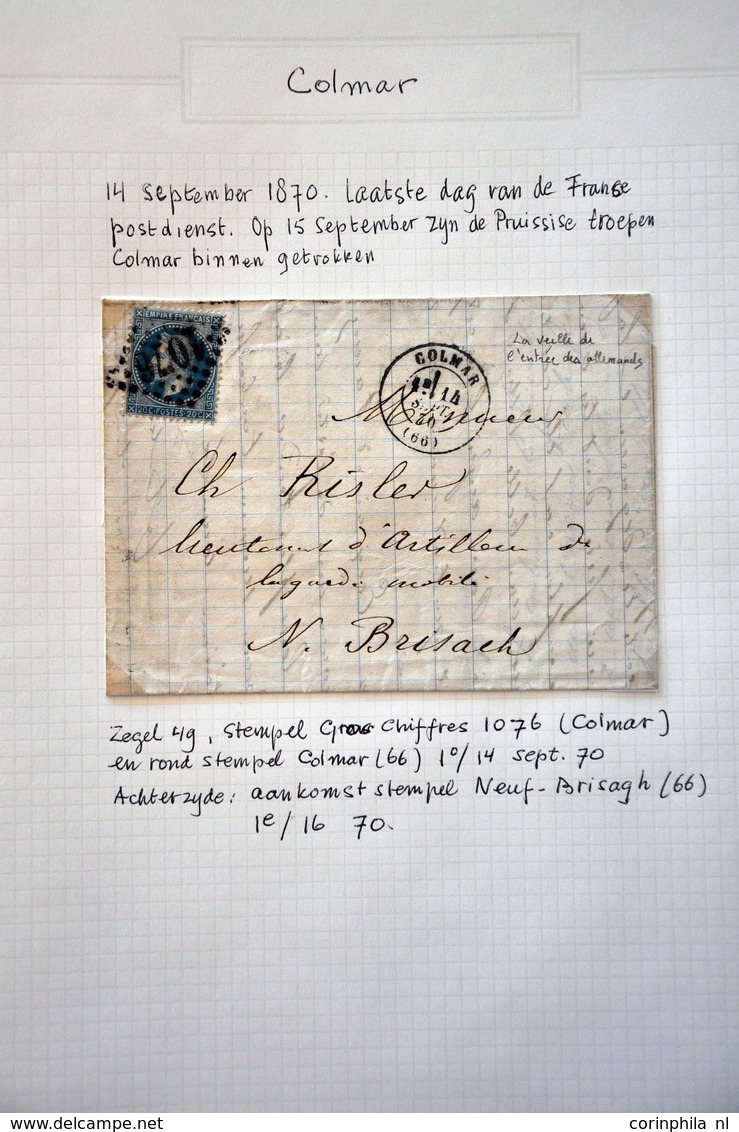 Colmar
14 september 1870. Laatste dag van de Franse
postdienst. Op 15 september zyn de Pruissise troepen
Colmar binnen getrokken
EMPIRE FRANÇAIS
1076
20 C·POSTES·20 C
COLMAR
14
SEPT.
70
(66)
La veille de
l'entrée des allemands
Monsieur
Ch Risler
lieutenant d'Artillerie de
la garde mobile
N. Brisach
Zegel 49, stempel Gros Chiffres 1076 (Colmar)
en rond stempel Colmar (66) 1º/14 sept. 70
Achterzyde: aankomst stempel Neuf-Brisagh (66)
1e/16 70.
corinphila nl